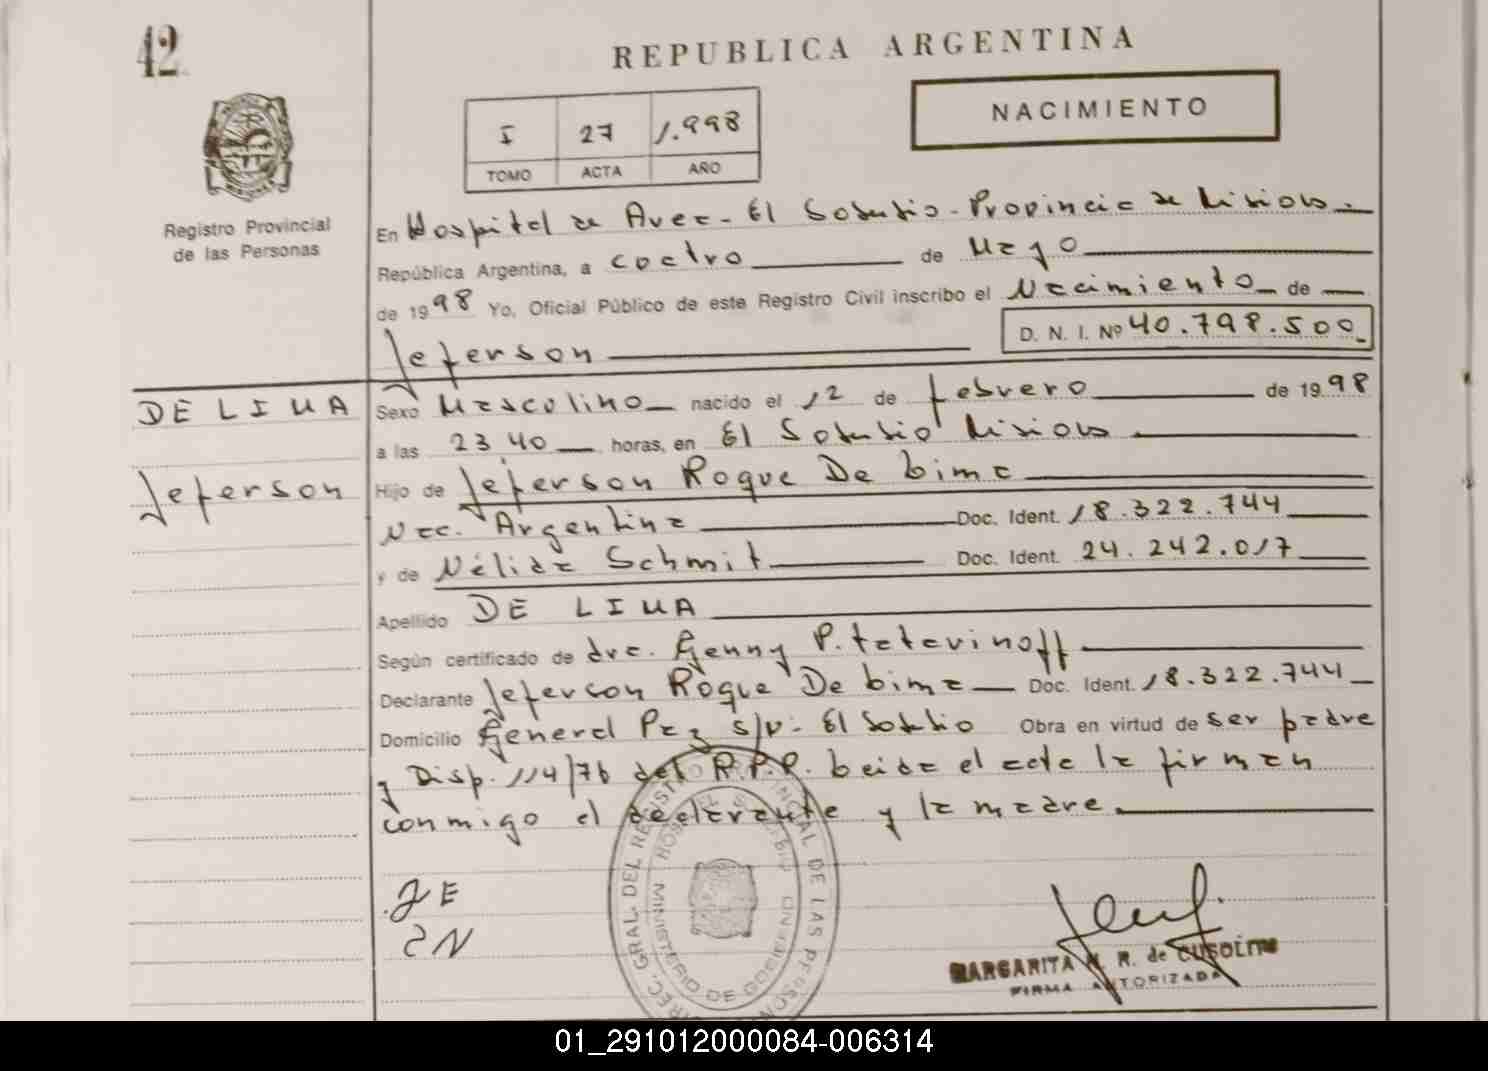 42
REPUBLICA ARGENTINA
NACIMIENTO
I 27 1.998
TOMO ACTA AÑO
Registro Provincial
de las Personas
En Hospital de Area - El Soberbio - Provincia de Misiones.-
República Argentina, a cuatro de Mayo
de 1998 Yo, Oficial Público de este Registro Civil inscribo el Nacimiento de
Jeferson D. N. I. Nº 40.798.500
DE LIMA
Sexo Masculino nacido el 12 de febrero de 1998
a las 23,40 horas, en El Soberbio Misiones
Jeferson
Hijo de Jeferson Roque De Lima
Nac. Argentina Doc. Ident. 18.322.744
y de Nélida Schmit Doc. Ident. 24.242.017
Apellido DE LIMA
Según certificado de dra. Genny P.
Declarante Jeferson Roque De Lima Doc. Ident. 18.322.744
Domicilio General Paz s/n - El Soberbio Obra en virtud de ser padre
y Disp. 114/76 del R.P.P. Leida el acta la firman
conmigo el declarante y la madre.
DIREC. GRAL. DEL REGISTRO PROVINCIAL DE LAS PERSONAS
MINISTERIO DE GOBIERNO
MARGARITA R. de
FIRMA AUTORIZADA
01_291012000084-006314